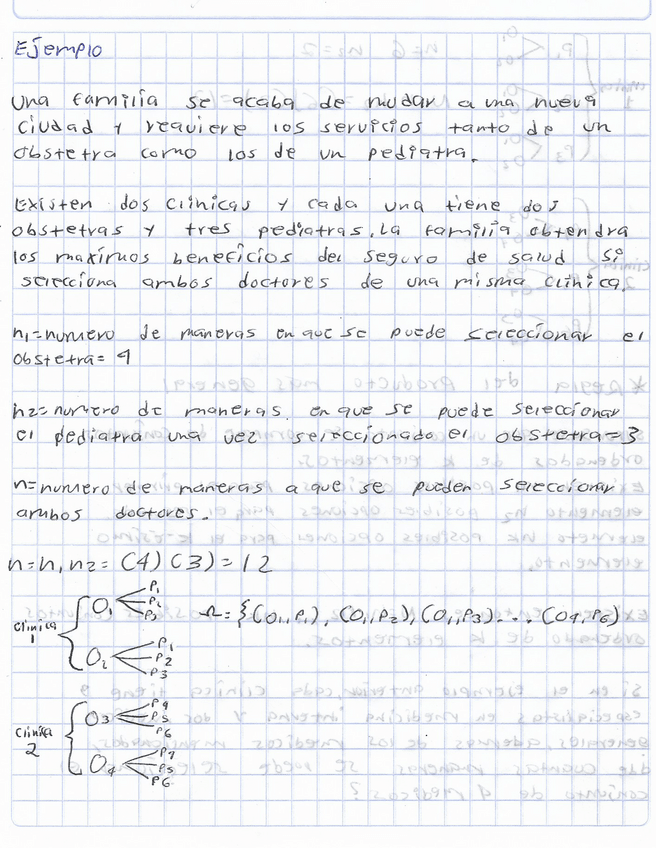 Ejemplo
Una familia se acaba de mudar a una nueva
ciudad y requiere los servicios tanto de un
obstetra como los de un pediatra.
Existen dos clinicas y cada una tiene dos
obstetras y tres pediatras. La familia obtendra
los maximos beneficios del seguro de salud si
selecciona ambos doctores de una misma clinica.
n₁=numero de maneras en que se puede seleccionar el
obstetra= 4
n₂=numero de maneras en que se puede seleccionar
el pediatra una vez seleccionado el obstetra=3
n=numero de maneras a que se pueden seleccionar
ambos doctores.
n=n₁n₂=(4)(3)=12
clinica 1 { O₁ < P₁ P₂ P₃
O₂ < P₁ P₂ P₃
Ω={(O₁,P₁),(O₁,P₂),(O₁,P₃)...(O4,P6)
clinica 2 { O3 < P4 P5 P6
O4 < P4 P5 P6